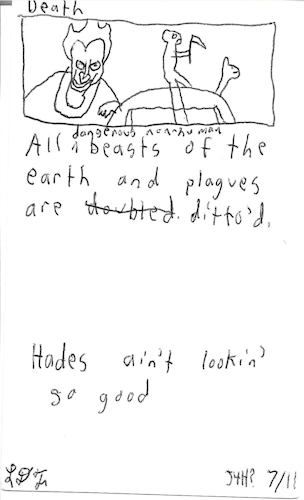 Death
dangerous nonhuman
All ^ beasts of the
earth and plagues
are doubled. ditto'd.
Hades ain't lookin'
so good
7/11